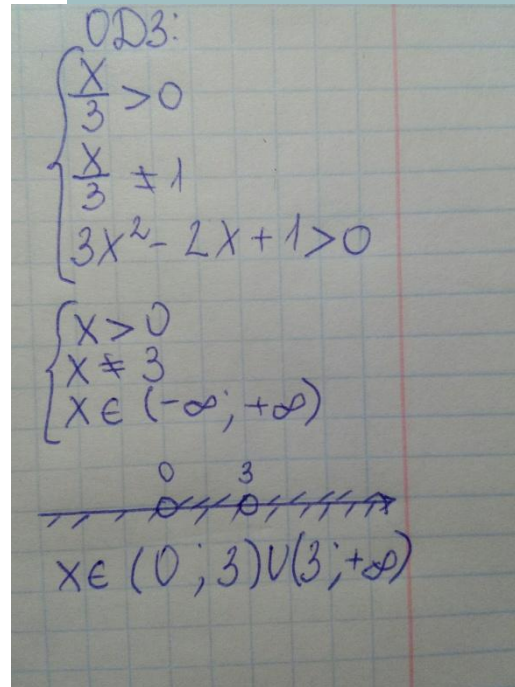 ОДЗ:
x/3 > 0
x/3 ≠ 1
3x² - 2x + 1 > 0
x > 0
x ≠ 3
x ∈ (-∞; +∞)
0 3
x ∈ (0; 3)∪(3; +∞)